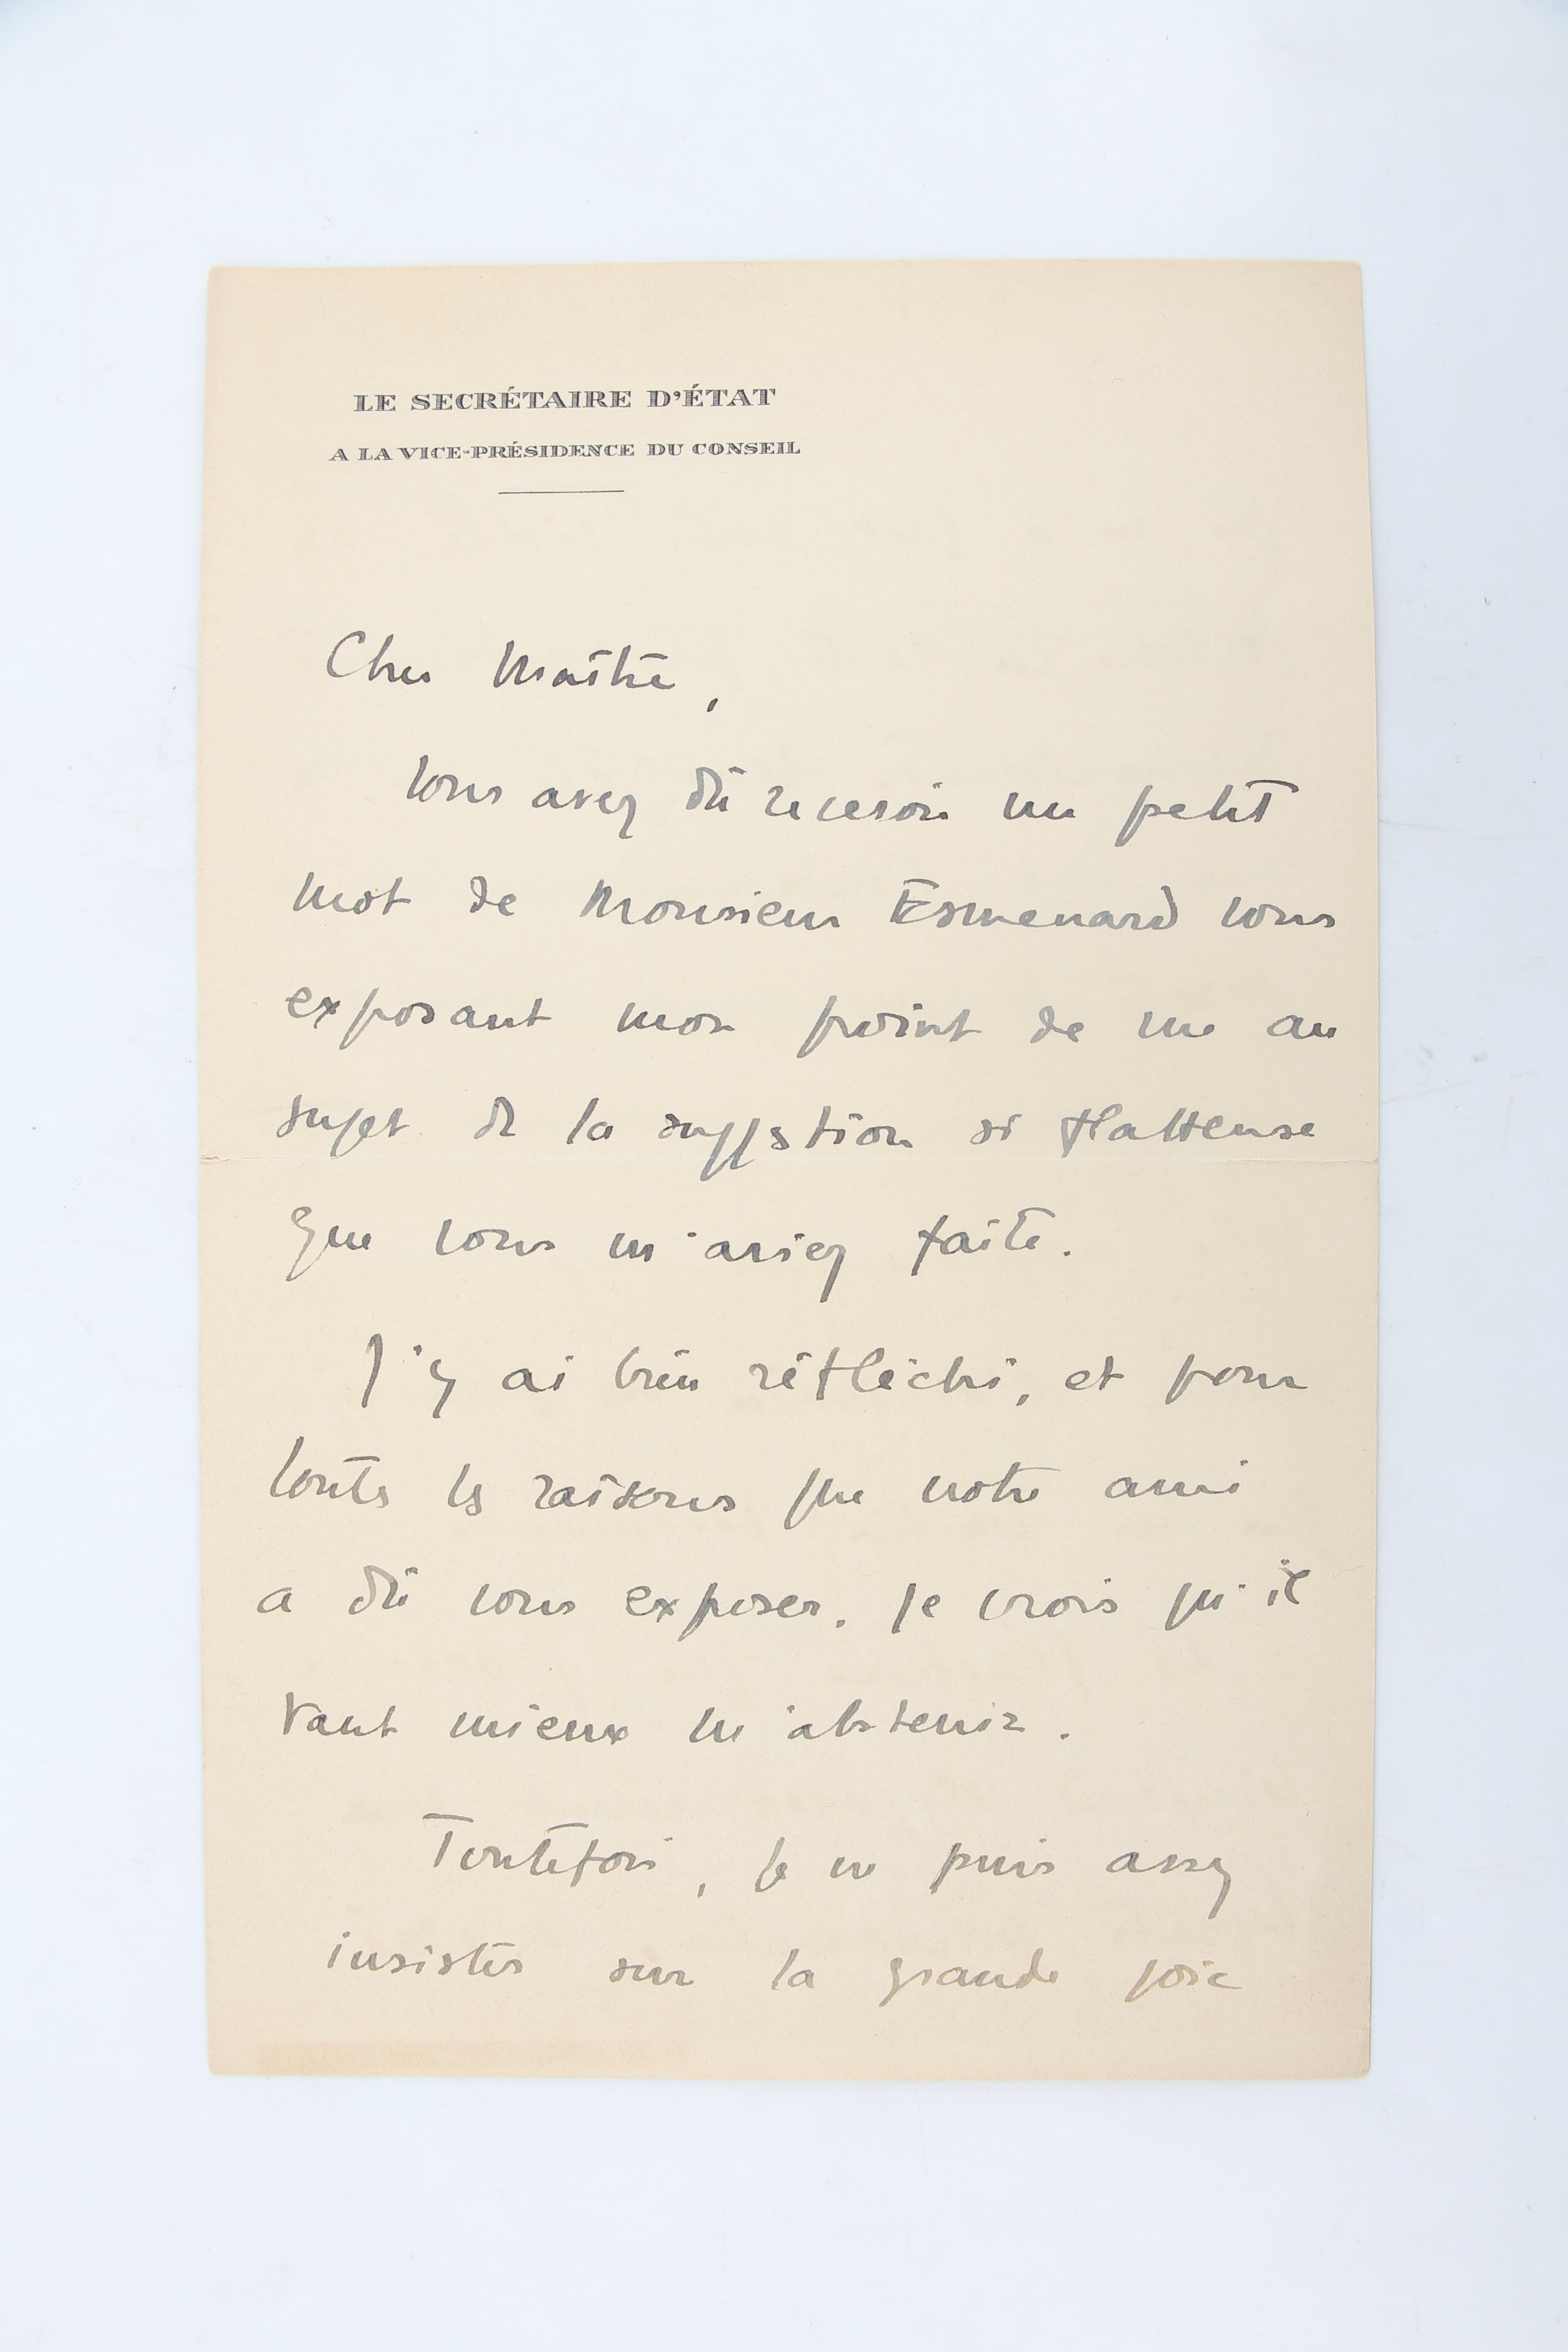 LE SECRÉTAIRE D'ÉTAT
A LA VICE-PRÉSIDENCE DU CONSEIL
Cher Maître,
Vous avez dû recevoir un petit
mot de Monsieur Esmenard vous
exposant mon point de vue au
sujet de la suggestion si flatteuse
que vous m'aviez faite.
J'y ai bien réfléchi, et pour
toutes les raisons que notre ami
a dû vous exposer, je crois qu'il
vaut mieux m'abstenir.
Toutefois, je ne puis assez
insister sur la grande joie